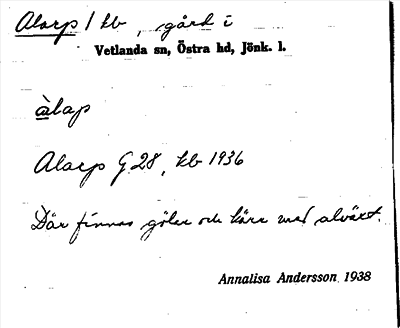 Alarp 1 kb, gård i
Vetlanda sn, Östra hd, Jönk. l.
àlap
Alarp G 28, kb 1936
Där finnas gölar och kärr med alväxt.
Annalisa Andersson 1938